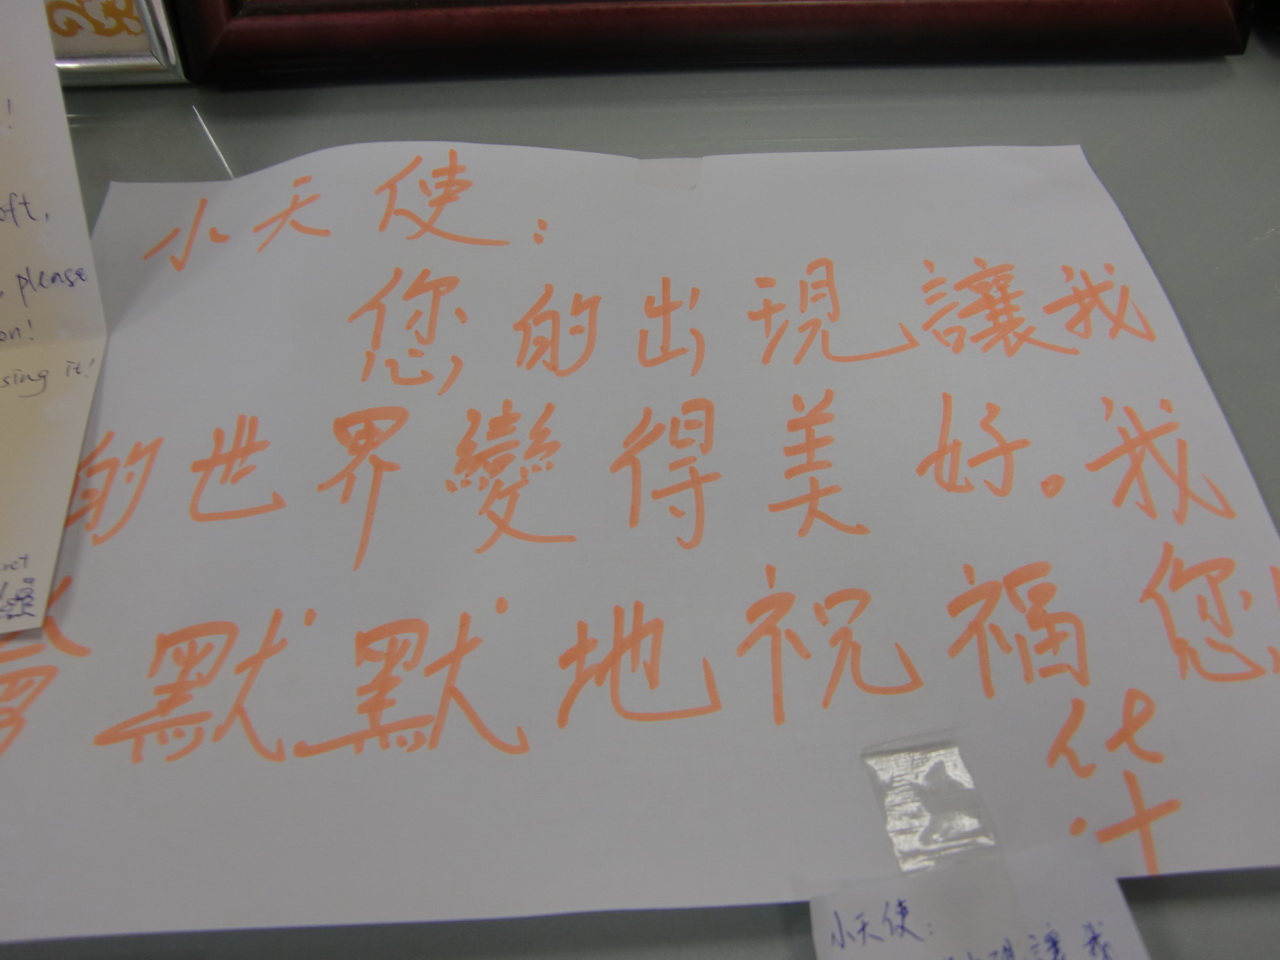 小天使：
您的出現讓我
的世界變得美好。我
會默默地祝福您！
华
小天使：
現讓我
!
oft,
, please
on!
sing it!